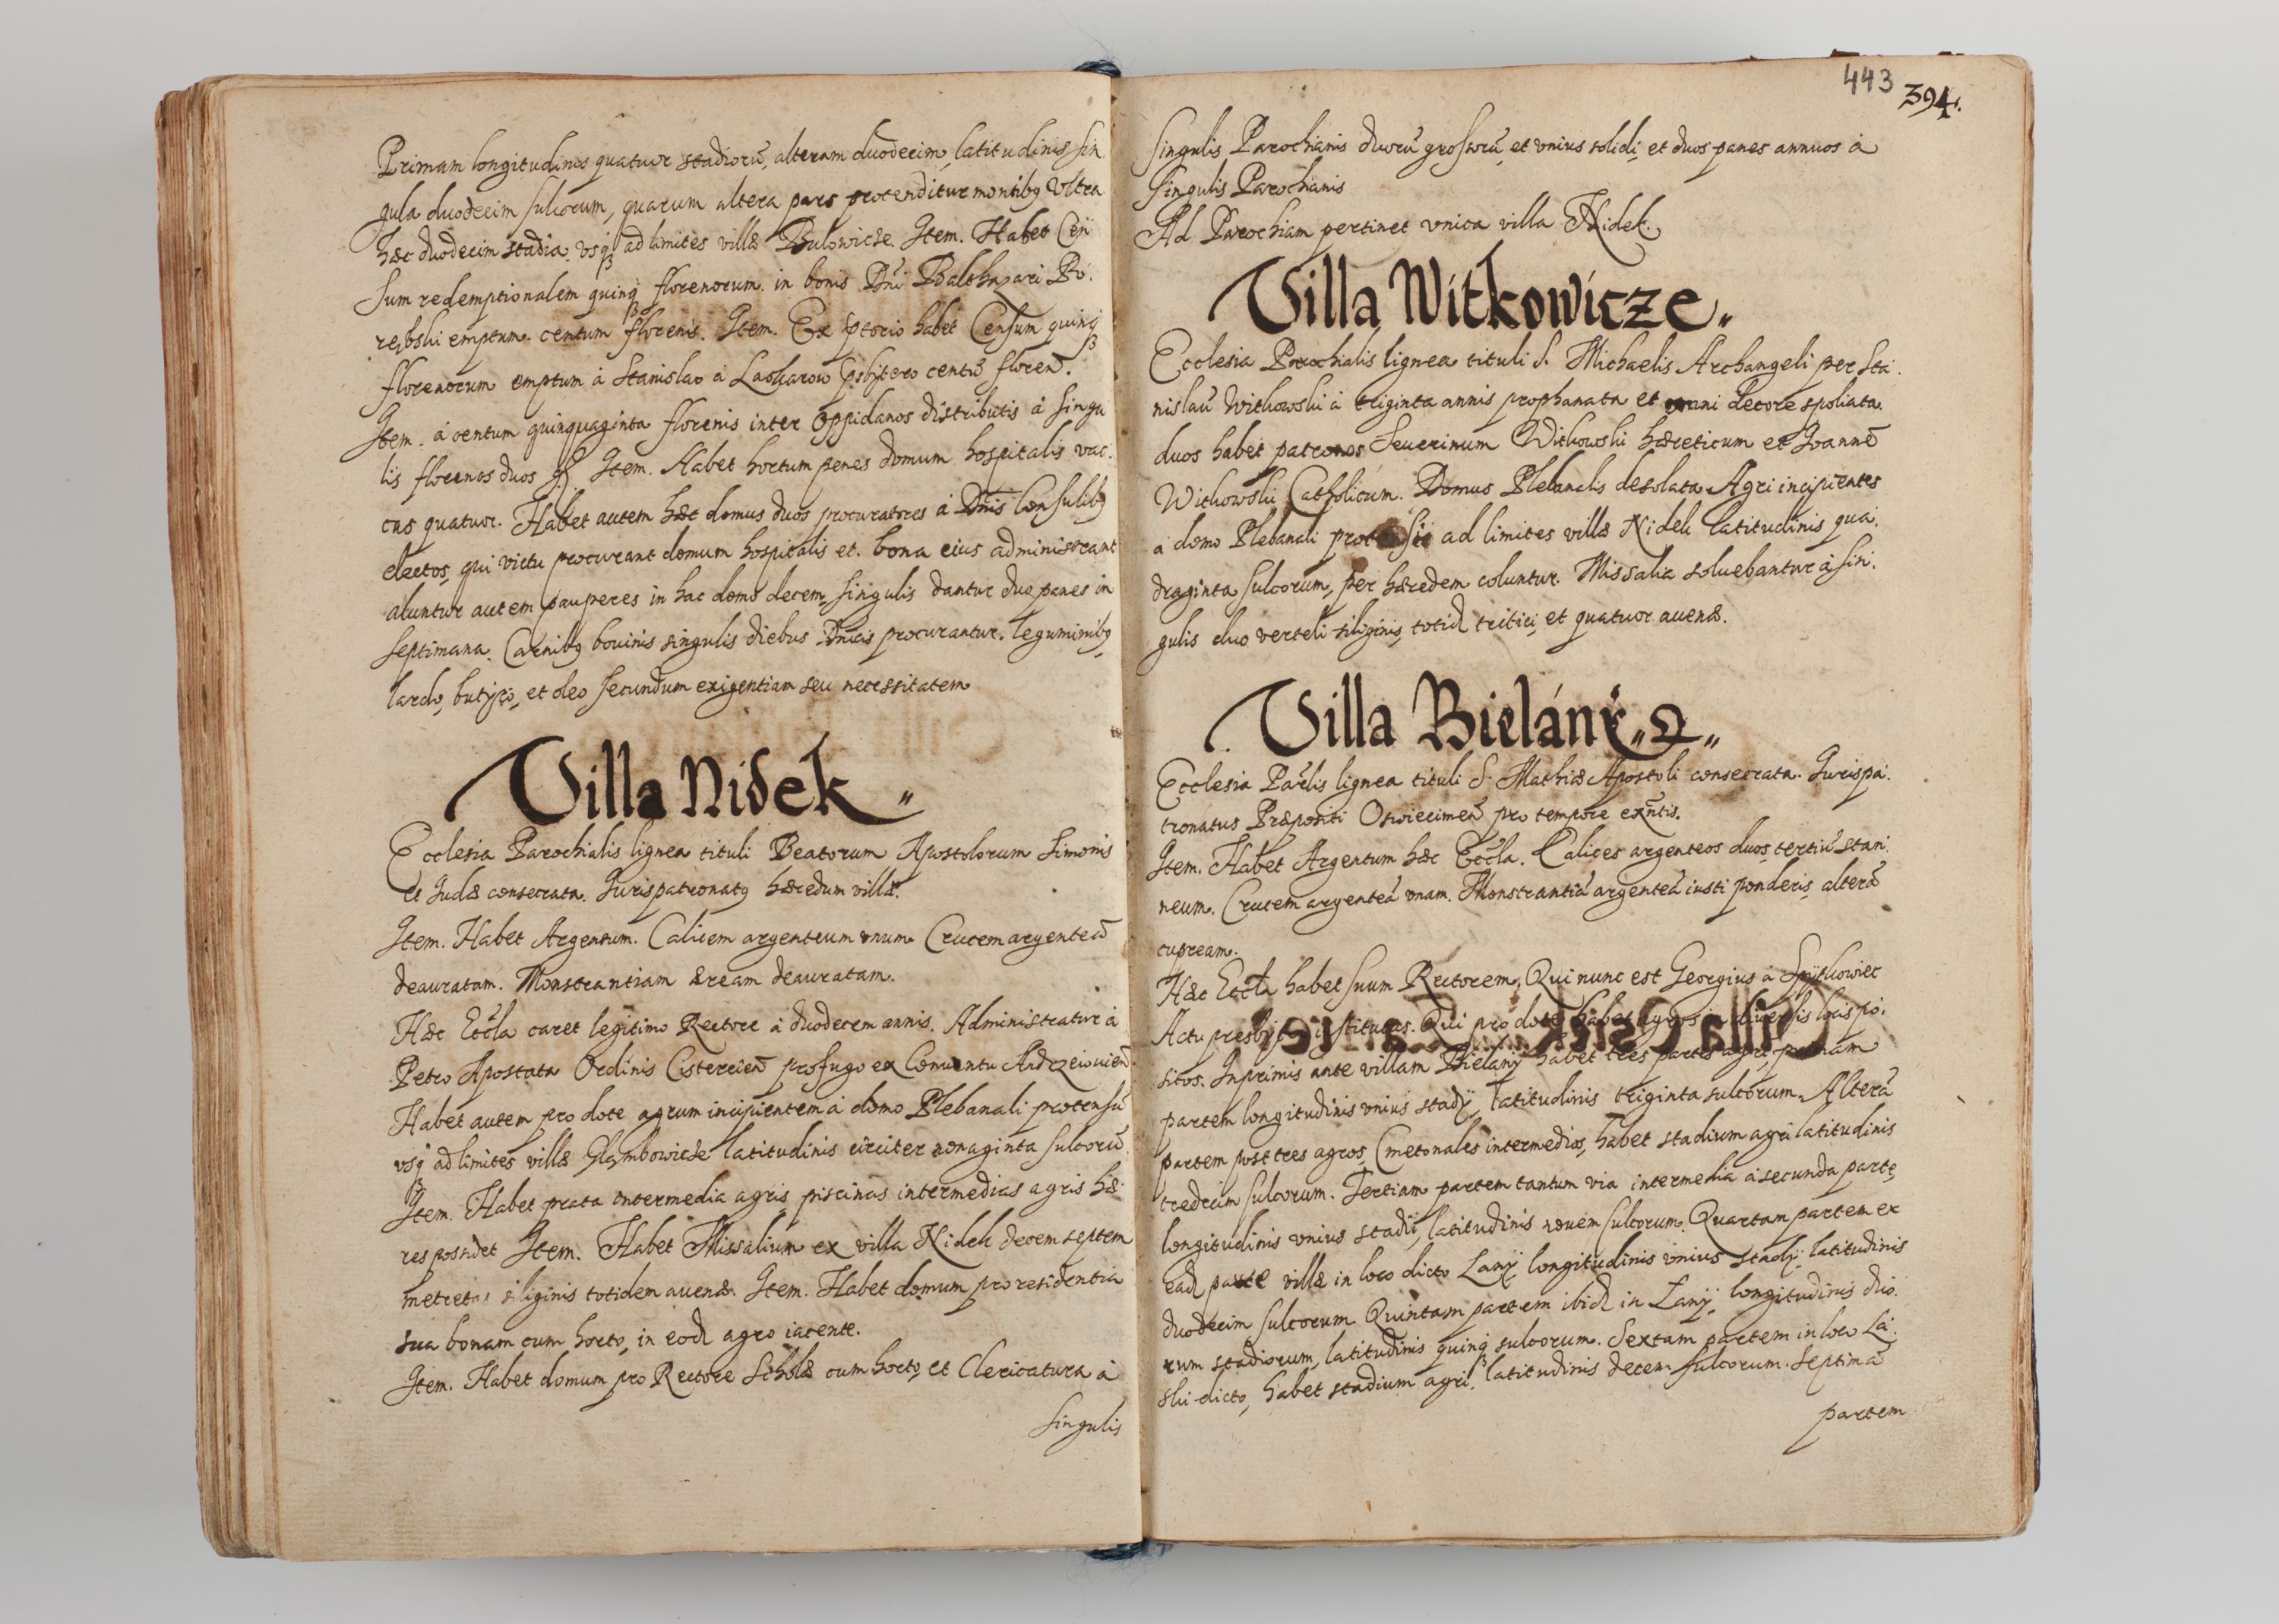 Primam longitudinis quatuor stadiorũ, alteram duodecim, latitudinis sin
gula duodecim sulcorum, quarum altera pars protenditur montibꝰ Vltra
hæc duodecim stadia usqꝫ ad limites villæ Bulowicze. Item. Habet Cen
sum redemptionalem quinqꝫ florenorum in bonis Dñi Balthazari Po
rebski emptum centum florenis. Item. Ex habet Censum quinqꝫ
florenorum emptum à Stanislao à Laskarow Psbÿtero centũ floren̄.
Item. à centum quinquaginta florenis inter Oppidanos distributis à singu
lis florenos duos Item. Habet hortum penes domum hospitalis vac.
cas quatuor. Habet autem hæc domus duos procuratores à Dñis Consulibꝰ
electos, qui victu procurant domum hospitalis et bona eius administrant
aluntur autem pauperes in hac domo decem, singulis dantur duo panes in
septimana. Carnibꝰ bouinis singulis diebus Dñicis procurantur. leguminibꝰ,
lardo, butÿro, et oleo secundum exigentiam seu necessitatem
Villa Nidek
Ecclesia Parochialis lignea tituli Beatorum Apostolorum Simonis
et Judæ consecrata. Jurispatronatꝰ hæredum villæ.
Item. Habet Argentum. Calicem argenteum vnum Crucem argenteã
deauratam. Monstrantiam æream deauratam.
Hæc Eccła caret legitimo Rectore à duodecem annis. Administratur à
Petro Apostata Ordinis Cistercien̄ profugo ex Conuentu Andrzeiouien̄
Habet autem pro dote agrum incipientem à domo Plebanali protensũ
vsqꝫ ad limites villæ Głambowicze latitudinis circiter nonaginta sulcorũ
Item. Habet prata intermedia agris, piscinas intermedias agris hæ
res possidet Item. Habet Missalium ex villa Nidek decem septem
metretas siliginis totidem auenæ. Item. Habet domum pro residentia
sua bonam cum horto, in eod agro iacente.
Item. Habet domum pro Rectore Scholæ cum horto, et Clericatura à
singulis
443
394.
singulis Parochianis duorũ grossorũ, et vnius solidi, et duos panes annuos à
singulis Parochianis
Ad Parochiam pertinet vnica villa Nidek.
Villa Witkowicze
Ecclesia Parochialis lignea tituli S. Michaelis Archangeli per Sta
nislaũ Witkowski à triginta annis prophanata et omni decore spoliata.
duos habet patronos Seuerinum Witkowski hæreticum et Joannẽ
Witkowski Catholicum. Domus Plebanalis desolata Agri incipientes
à domo Plebanali protensii ad limites villæ Nidek latitudinis qua
draginta sulcorum, per hæredem coluntur. Missalia soluebantur à sin
gulis duo verteli siliginis, totid tritici, et quatuor auenæ.
Villa Bielánÿ
Ecclesia Parłis lignea tituli S. Mathiæ Apostoli consecrata. Jurispa
tronatus Præpositi Oswiecimen̄ pro tempore exñtis.
Item. Habet Argentum hæc Eccła. Calices argenteos duos, tertiũ stan
neum. Crucem argenteã vnam. Monstrantiã argenteã iusti ponderis, alterã
cupream.
Hæc Eccła habet suum Rectorem, Qui nunc est Georgius à Spÿtkowicz
Actu presbÿter institutus. Qui pro dote habet agros in diuersis locis po
sitos. Inprimis ante villam Bielanÿ habet tres partes agri, primam
partem longitudinis vnius stadÿ, latitudinis triginta sulcorum. Alterã
partem post tres agros, Cmetonales intermedios, habet stadium agri latitudinis
tredecim sulcorum. Tertiam partem tantum via intermedia à secunda parte,
longitudinis vnius stadÿ, latitudinis nouem sulcorum. Quartam partem ex
ead parte villæ in loco dicto Lanÿ longitudinis vnius stadÿ, latitudinis
duodecim sulcorum Quintam partem ibid in Lanÿ, longitudinis duo
rum stadiorum, latitudinis quinqꝫ sulcorum. Sextam partem in loco La
ski dicto, habet stadium agri, latitudinis decem sulcorum. Septimã
partem